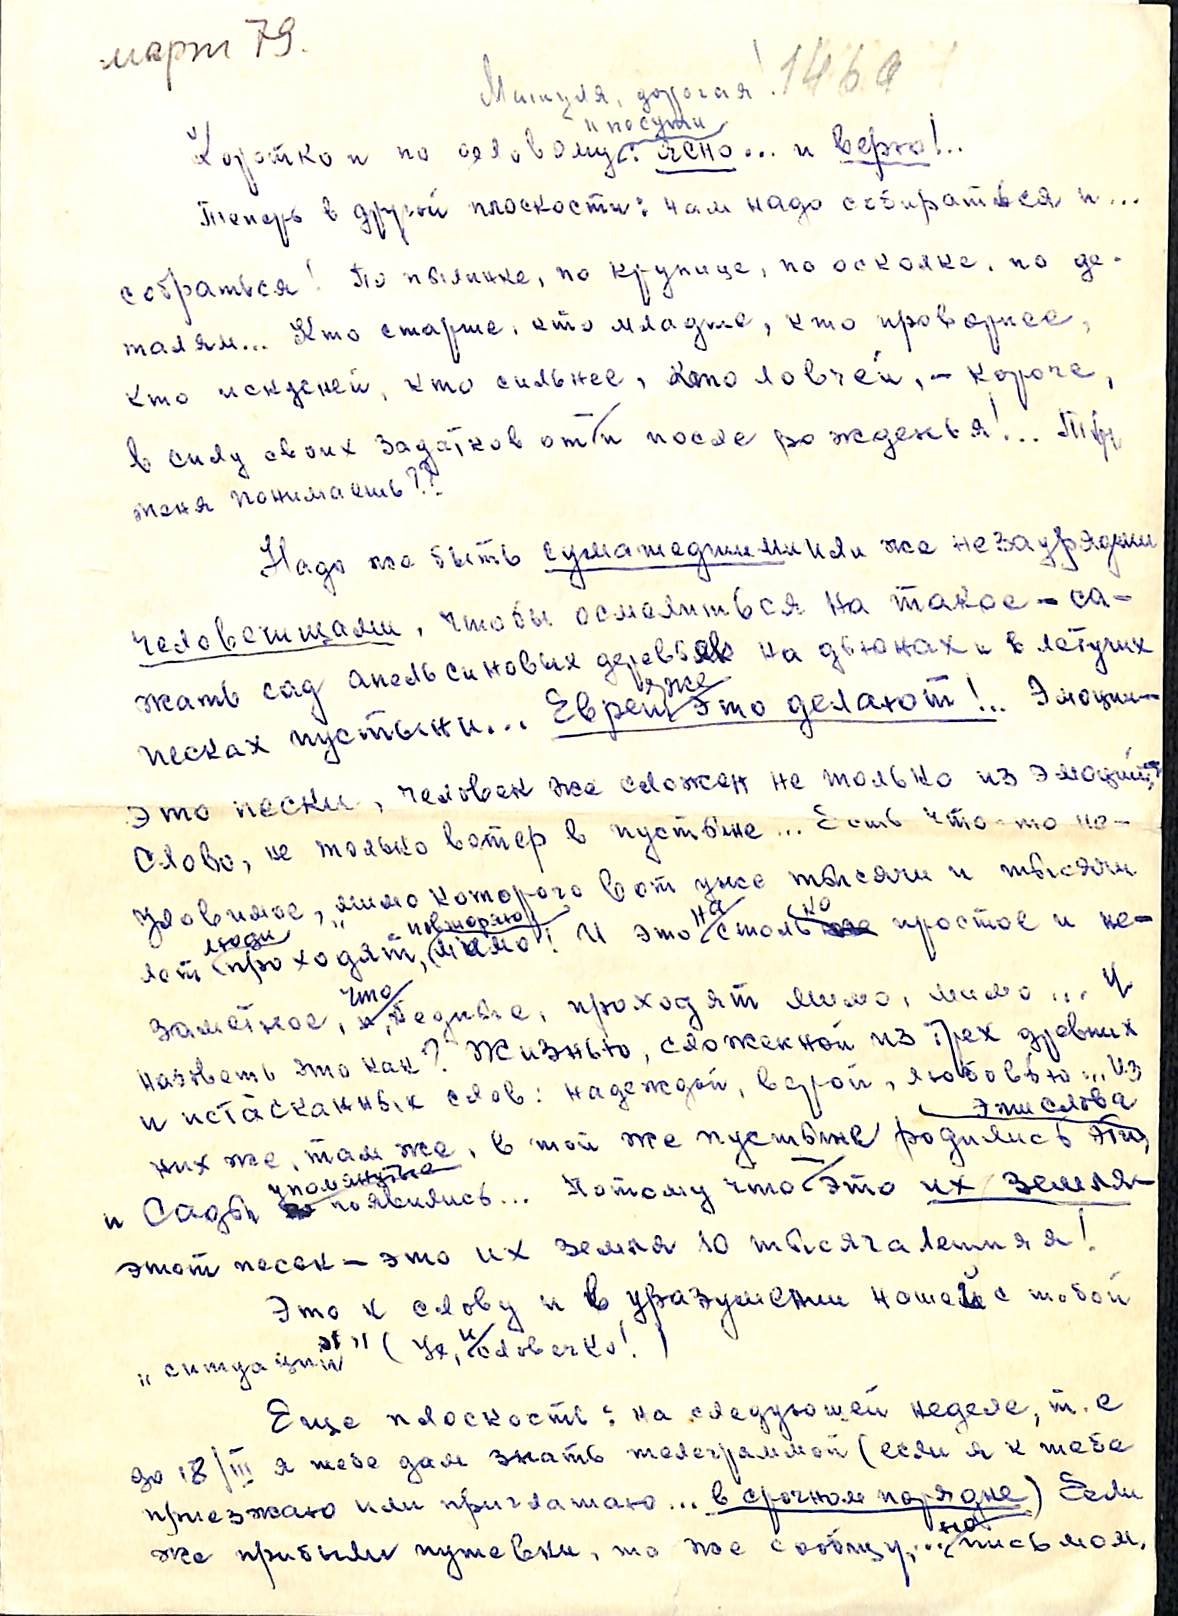 март 79.
146а
Мицуля, дорогая!
и по сути
Коротко и по деловому: ясно... и верю!..
Теперь в другой плоскости: нам надо собираться и...
собраться! По пылинке, по крупице, по осколке, по де-
талям... Кто старше, кто младше, кто проворнее,
кто искусней, кто сильнее, кто ловчей, - короче,
в силу своих задатков от и после рожденья!... Ты
меня понимаешь??
Надо же быть сумашедшими или же незаурядными
человечищами, чтобы осмелиться на такое - са-
жать сад апельсиновых деревьев на дюнах и в летучих
уже
песках пустыни... Евреи это делают!... Эмоции -
это пески, человек же сложен не только из эмоций,
Слово, не только ветер в пустыне... Есть что-то не-
уловимое, мимо которого вот уже тысячи и тысячи
люди повторяю на ко
лет проходят, (мимо! И это столь простое и не-
что
заметное, и, бедные, проходят мимо, мимо... И
назвать это как? Жизнью, сложенной из трех древних
и истасканных слов: надеждой, верой, любовью... Из
эти слова
них же, там же, в той же пустыне родились эти,
упомянутые
и Сады появились... Потому что это их земля -
этот песок - это их земля 10 тысячалетняя!
Это к слову и в уразумении нашей с тобой
„ситуации" (Ух, и словечко!)
Еще плоскость: на следующей неделе, т.е
до 18/III я тебе дам знать телеграммой (если я к тебе
приезжаю или приглашаю... в срочном порядке) Если
но
же прибыли путевки, то же сообщу,... письмом.